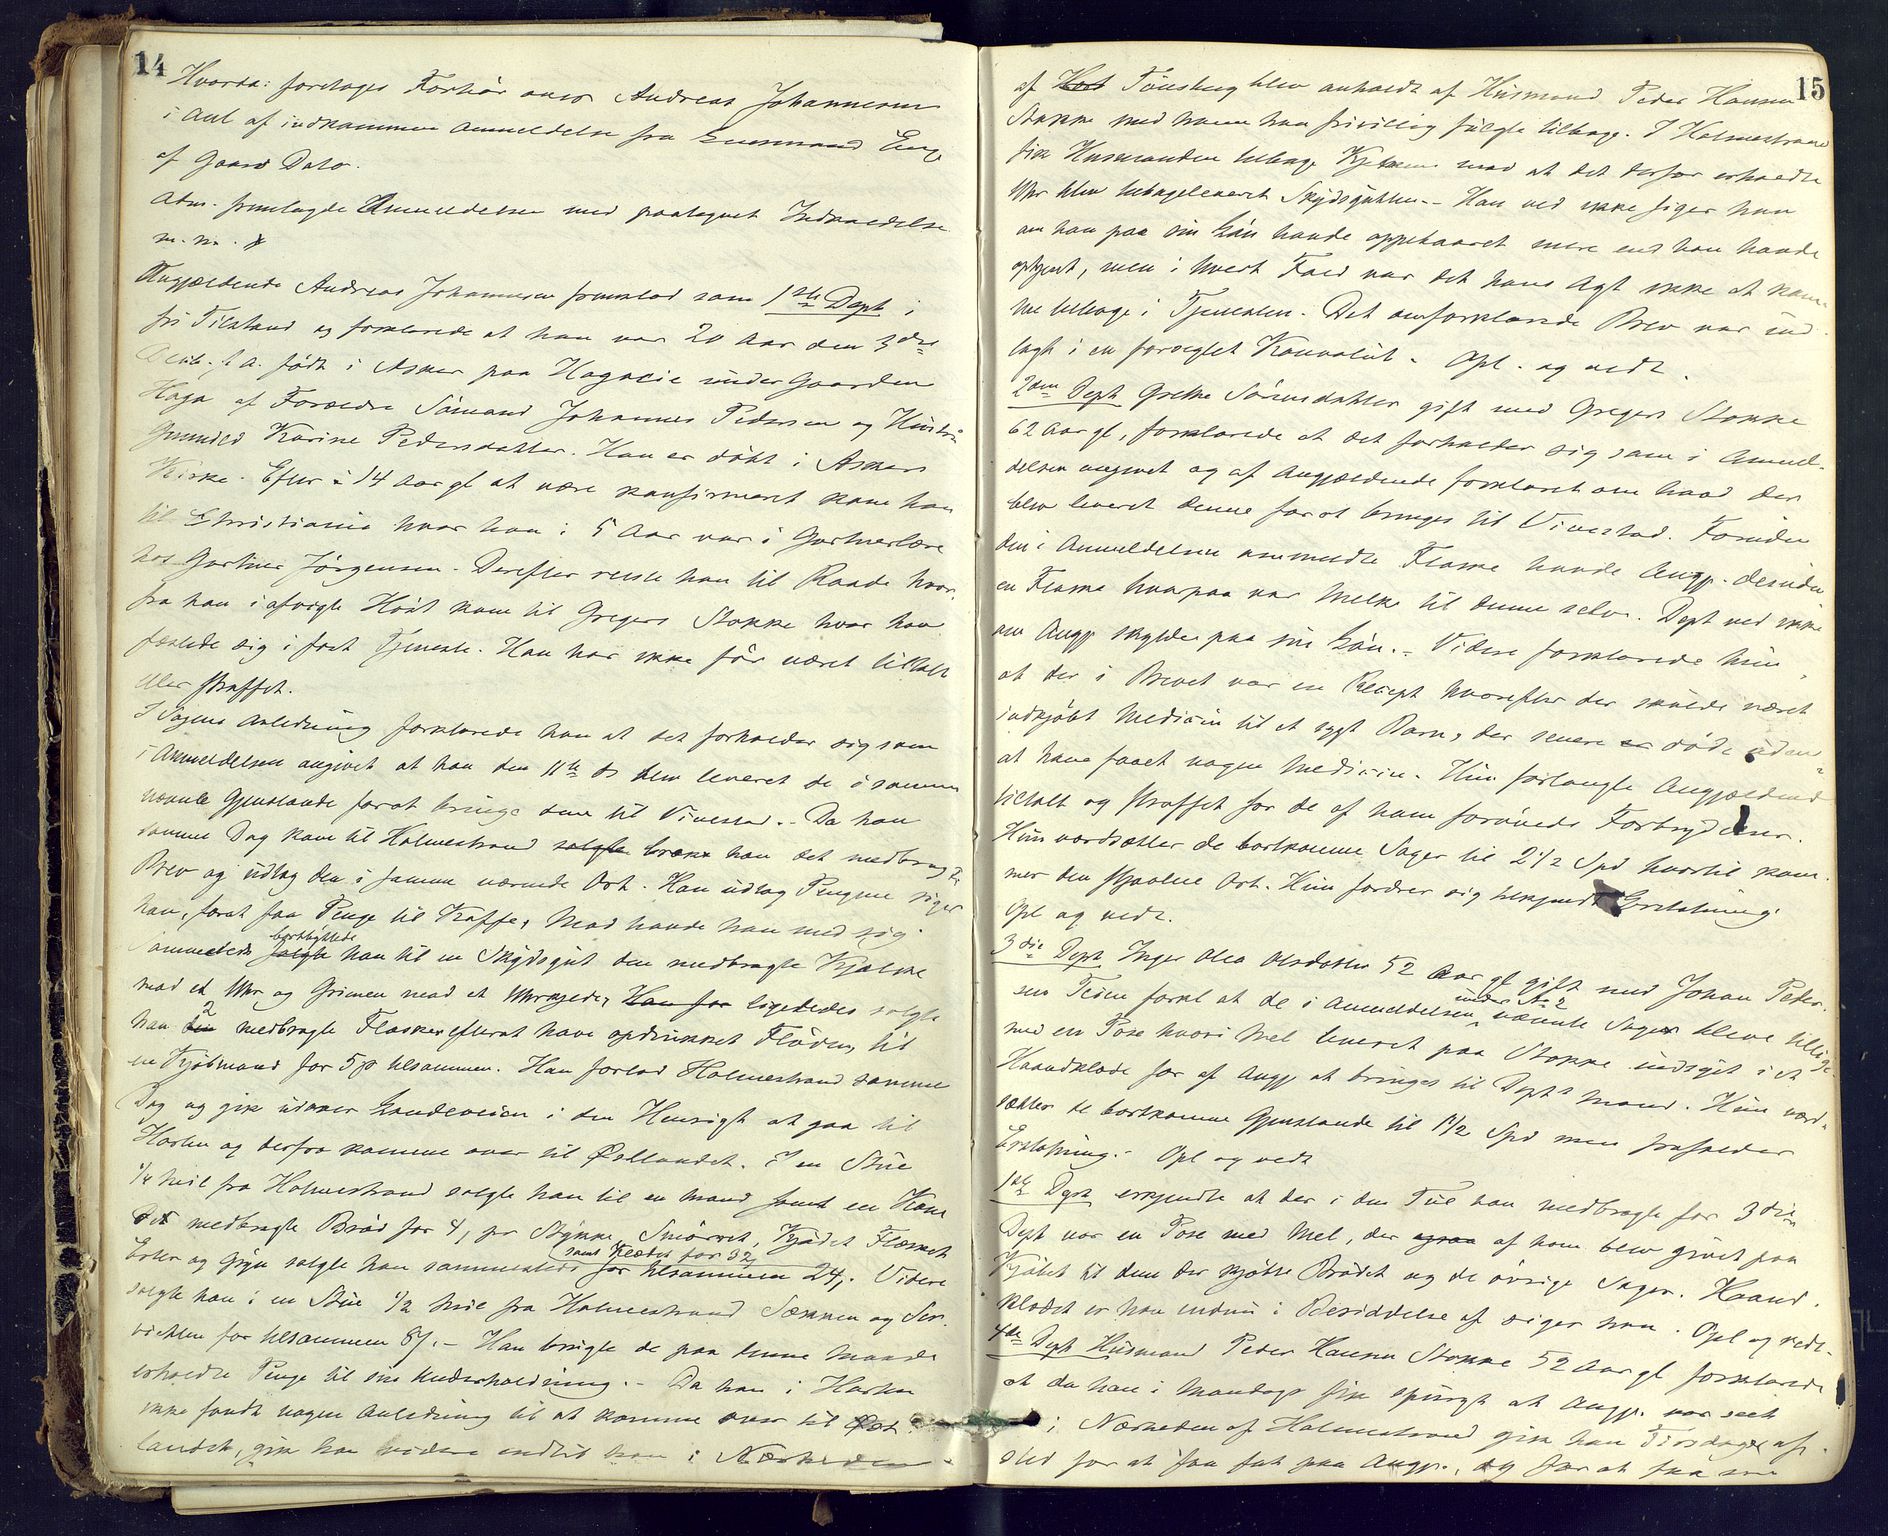 14
Hvorda: foretoges Forhør over Andreas Johannesen
i Anl af indkommen Anmeldelse fra Lensmand Eng
af Gaars Dato.
Adm. fremlagde Anmeldelsen med paategnet Indkaldelse
m. m.
Angjældende Andreas Johannesen fremstod som 1ste Dept i
fri Tilstand og forklarede at han var 20 Aar den 3die
f. A. født i Asker paa under Gaarden
Haga af Forældre Sømand Johannes Pedersen og Hustru
Gunnild Karine Pedersdatter. Han er døbt i Askers
Kirke. Efter i 14 Aar gl at være konfirmeret kom han
til Christiania hvor han i 5 Aar var i Gartnerlære
hos Gartner Jørgensen. Derefter reiste han til Raade hvor-
fra han i afvigte Høst kom til Gregers Stokke hvor han
fæstede sig i fast Tjeneste. Han har ikke før været tiltalt
eller straffet.
I Sagens Anledning forklarede han at det forholder sig som
i Anmeldelsen angivet at han den 11te ds blev leveret de i samme
nævnte Gjenstande for at bringe dem til Vivestad. - Da han
samme Dag kom til Holmestrand solgte brække han det medbragte
Brev og udtog den i samme værende Ort. Han udtog Pengene siger
han, forat faa Penge til Kaffe, Mad havde han med sig.
Sammesteds solgte bortbyttede han til en Skydsgut den medbragte Kjælke
mod et Uhr og Grimen mod et Uhrkjede, Han for ligeledes solgte
han 2 medbragte Flasker efterat have opdrukket Fløden, til
en Kjøbmand for 5 β tilsammen. Han forlod Holmestrand samme
Dag og gik udover Landeveien i den Hensigt at gaa til
Horten og derfra komme over til Østlandet. I en Stue
1/4 Mil fra Holmestrand solgte han til en Mand samt en Kone
det medbragte Brød for 4 β pr Stykke, Smørret, Kjødet Flæsket
Erter og Gryn solgte han sammesteds samt Klædet for 32 for tilsammen 24 β. Videre
solgte han i en Stue 1/2 Mil fra Holmestrand Sækken og Ser-
vietten for tilsammen 8 β. - Han brugte de paa denne Maade
erholdte Penge til sin Underholdning. - Da han i Horten
ikke fandt nogen Anledning til at komme over til Øst-
landet, gik han videre indtil han i Nærheden
15
af Hort Tønsberg blev anholdt af Husmand Peder Hansen
Stokke med hvem han frivillig fulgte tilbage. I Holmestrand
fik Husmanden tilbage Kjelken mod at det derfor erholdte
Uhr blev tilbageleveret Skydsgutten. - Han ved ikke siger han
om han paa sin Løn havde oppebaaret mere end han havde
optjent, men i hvert Fald var det hans Agt ikke at kom-
me tilbage i Tjenesten. Det omforklarede Brev var ind-
lagt i en forseglet Konvolut. - Opl. og vedt.
2den Dept Grethe Sørensdatter gift med Gregers Stokke
62 Aar gl, forklarede at det forholder sig som i Anmel-
delsen angivet og af Angjældende forklaret om hvad der
blev leveret denne for at bringes til Vivestad. Foruden
den i Anmeldelsen ommeldte Flaske havde Angj. desuden
en Flaske hvorpaa var Melk til denne selv. Dept ved ikke
om Angj skylder paa sin Løn. - Videre forklarede hun
at der i Brevet var en Recept hvorefter der skulde været
indkjøbt Medicin til et sygt Barn, der senere er døde uden
at have faaet nogen Medicin. Hun forlangte Angjældende
tiltalt og straffet for de af ham forøvede Forbrydelser.
Hun værdsætter de bortkomne Sager til 2 1/2 Spd hvortil kom-
mer den stjaalne Ort. Hun fordrer sig tilkjendt Erstatning.
Opl og vedt.
3die Dept Inger Olea Olsdatter 52 Aar gl gift med Johan Peder-
sen Teien forkl at de i Anmeldelsen under No 2 nævnte Sager bleve tillige
med en Pose hvori Mel leveret paa Stokke indsyet i et
Haandklæde for af Angj at bringes til Depts Mand. Hun værd-
sætter de bortkomne Gjenstande til 1 1/2 Spd men frafalder
Erstatning. - Opl og vedt
1ste Dept erkjendte at der i den Tue han medbragte for 3die
Dept var en Pose med Mel, der ogsaa af ham blev givet paa
Kjøbet til dem der kjøbte Brødet og de øvrige Sager. Haand-
klædet er han endnu i Besiddelse af siger han. Opl og vedt.
4de Dept Husmand Peder Hansen Stokke 52 Aar gl forklarede
at da han i Mandags fik spurgt at Angj. var seet
i Nærheden af Holmestrand gik han Tirsdags af-
sted for at faa fat paa Angj., og for at faa